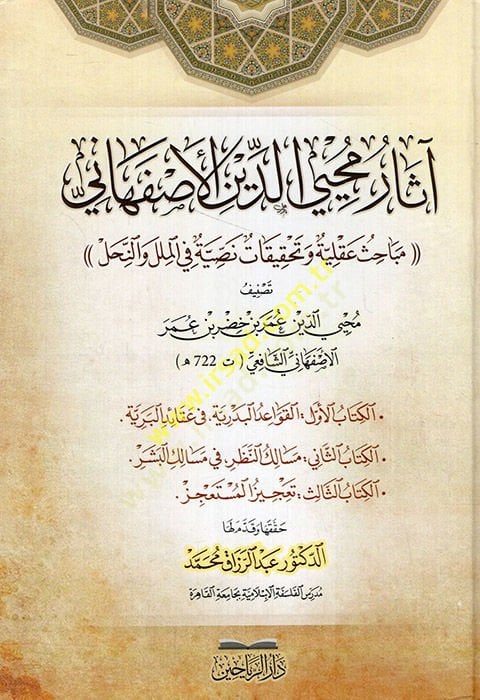 آثار محيي الدين الأصفهاني
(( مباحث عقلية وتحقيقات نصية في الملل والنحل ))
تصنيف
محيي الدين عمر بن خضر بن عمر
الأصفهاني الشافعي ( ت 722 هـ )
• الكتاب الأول : القواعد البدرية . في عقائد البرية .
• الكتاب الثاني : مسالك النظر ، في مسالك البشر .
• الكتاب الثالث : تعجيز المستعجز .
حققها وقدم لها
الدكتور عبد الرزاق محمد
مدرس الفلسفة الإسلامية بجامعة القاهرة
دار الرياحين
www.irsad.com.tr